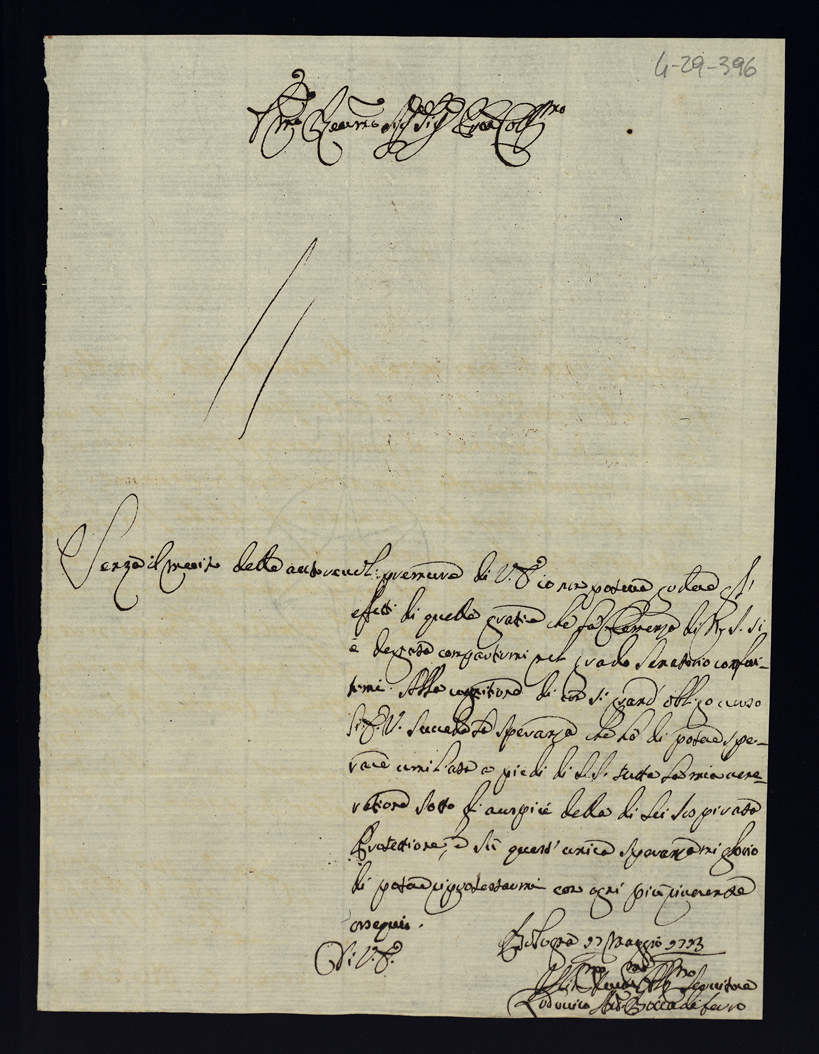 4-29-396
Em.mo Rev.mo Sig. Sig. Pron Coll.mo
Senza il merito delle autorevoli premure di V. E. io non poteva godere gl'
effetti di quella gratia che la Clemenza di N. S. si
è degnata compartirmi nel grado Senatorio confer-
tomi. Alla cognitione di così grand' obligo verso
di V. E. succede la speranza che ho di potere
umiliata a piedi di S. S. tutta la mia vene-
ratione sotto gli auspici della di Lei
Protettione, e su quest' unica speranza mi glorio
di potere protestarmi con ogni più riverente
ossequio.
Di V. E.
Bologna 27 Maggio 1713
Servitore
Lodovico Boccadiferro